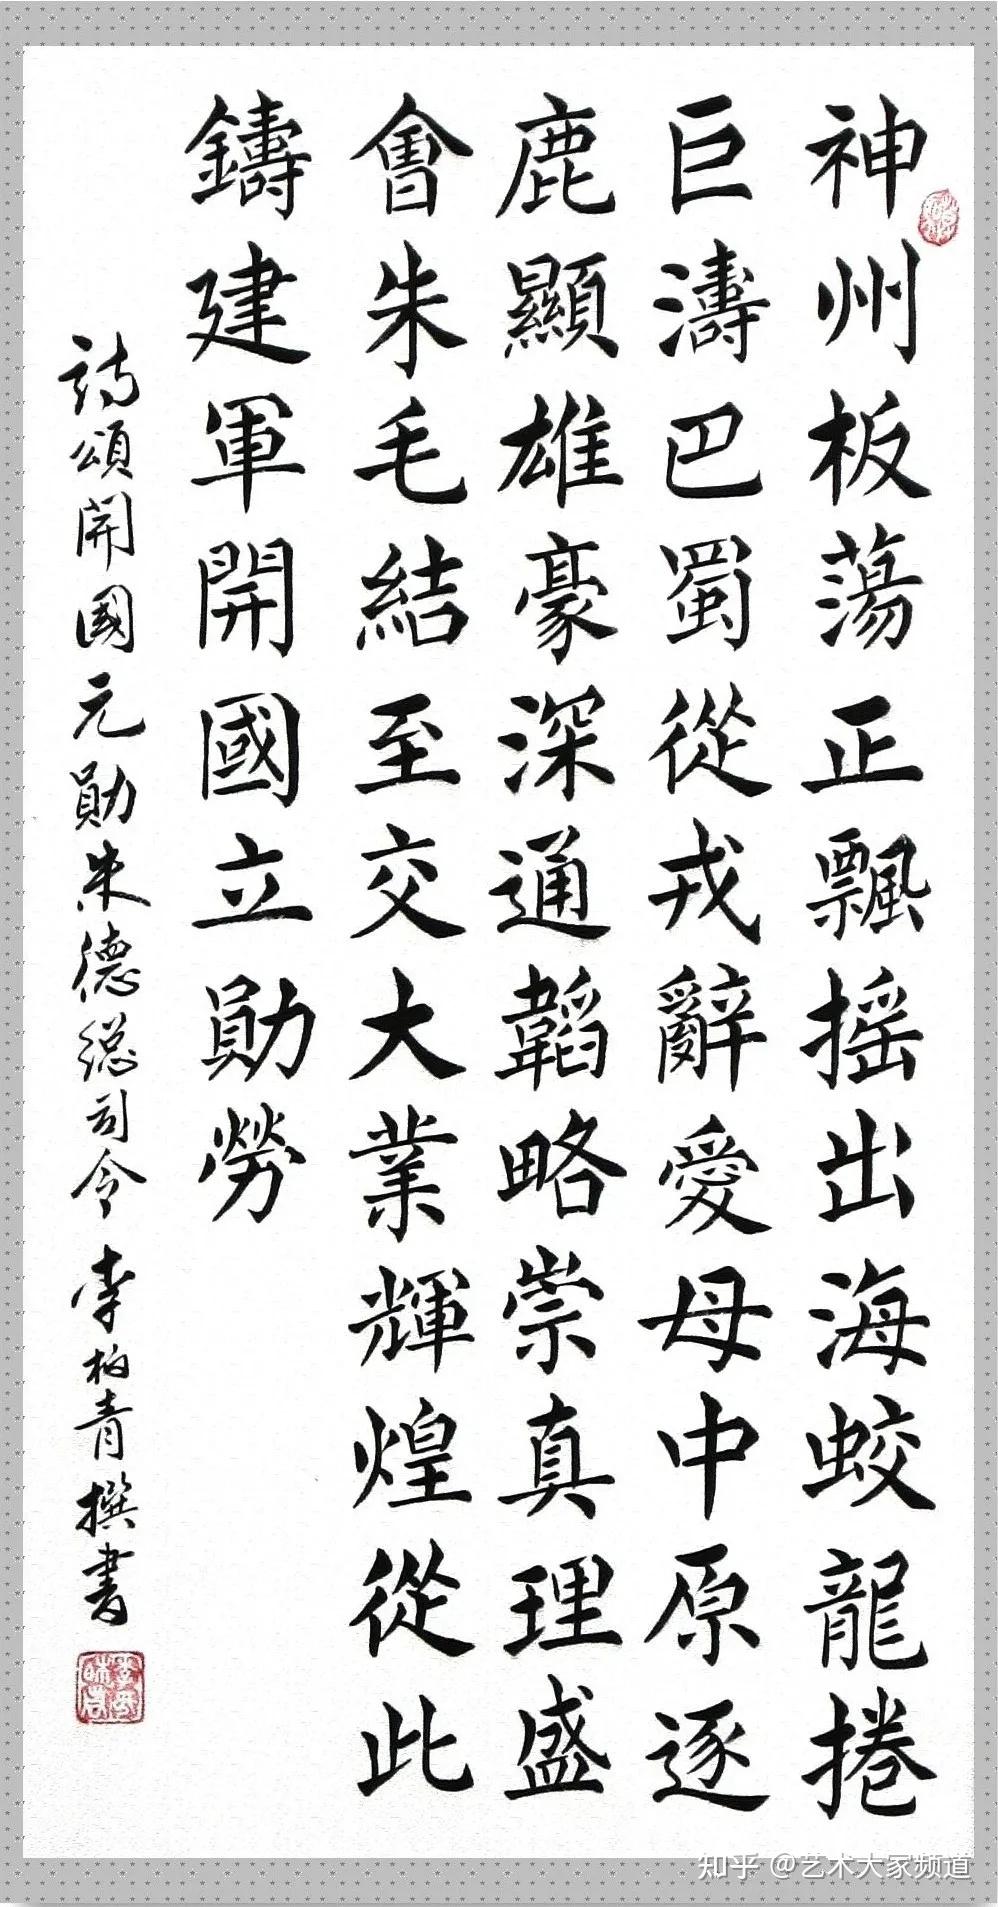 神州板蕩正飄搖出海蛟龍捲
巨濤巴蜀從戎辭愛母中原逐
鹿顯雄豪深通韜略崇真理盛
會朱毛結至交大業輝煌從此
鑄建軍開國立勛勞
詩頌開國元勛朱德總司令 李柏青撰書
知乎 @艺术大家频道